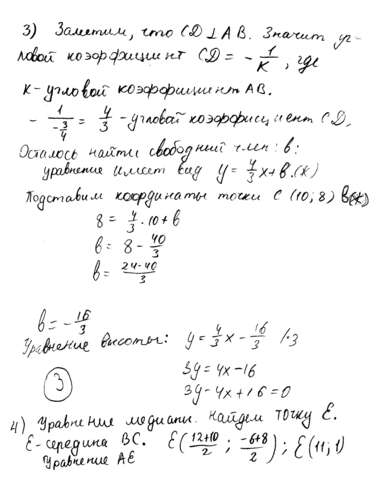 3) Заметим, что CD ⊥ AB. Значит уг-
ловой коэффициент CD = -1/K, где
K - угловой коэффициент AB.
- 1/(-3/4) = 4/3 - угловой коэффициент CD.
Осталось найти свободный член: b:
уравнение имеет вид y = 4/3 x + b. (*)
Подставим координаты точки C (10; 8) в (*)
8 = 4/3 · 10 + b
b = 8 - 40/3
b = (24-40)/3
b = -16/3
Уравнение высоты: y = 4/3 x - 16/3 /·3
3y = 4x - 16
3y - 4x + 16 = 0
3
4) Уравнение медианы. Найдем точку E.
E - середина BC. E((12+10)/2 ; (-6+8)/2) ; E(11; 1)
Уравнение AE